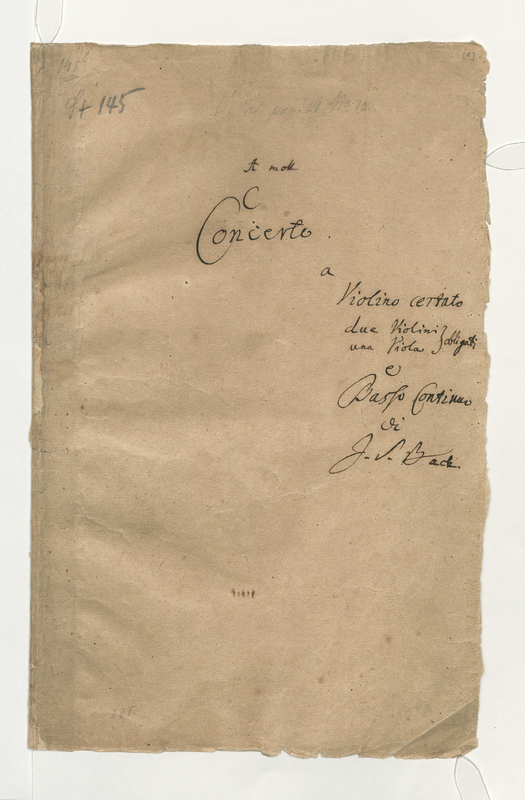 145
St 145
A moll
C
Concerto.
a
Violino certato
due Violini } obligati
una Viola
e
Basso Continuo
di
J. S. Bach.